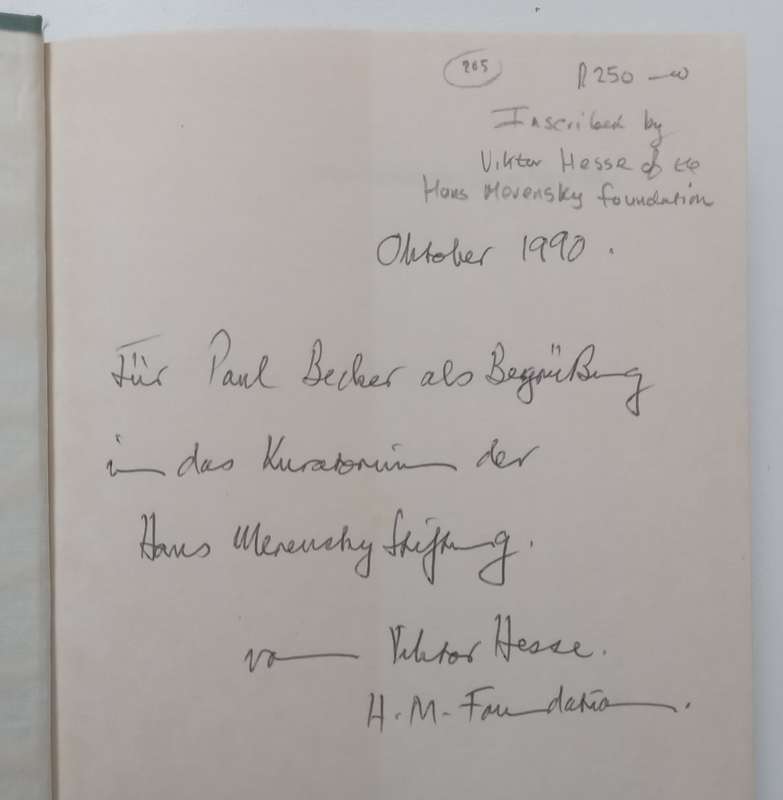 265
R250 —00
Inscribed by
Viktor Hesse of the
Hans Merensky foundation
Oktober 1990.
Für Paul Becker als Begrüßung
in das Kuratorium der
Hans Merensky Stiftung.
von Viktor Hesse.
H.M. Foundation.